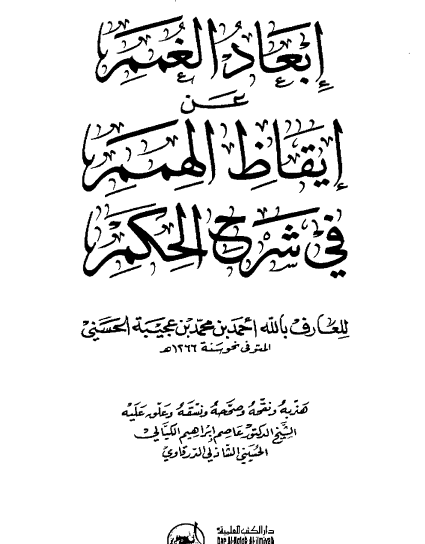 إبعاد الغمم
عن
إيقاظ الهمم
في شرح الحكم
للعارف بالله أحمد بن محمد بن عجيبة الحسني
المتوفى نحو سنة ١٢٦٦هـ
هذبه ونقحه وصححه ونسقه وعلق عليه
الشيخ الدكتور عاصم إبراهيم الكيالي
الحسيني الشاذلي الدرقاوي
دار الكتب العلمية
Dar Al-Kotob Al-ilmiyah